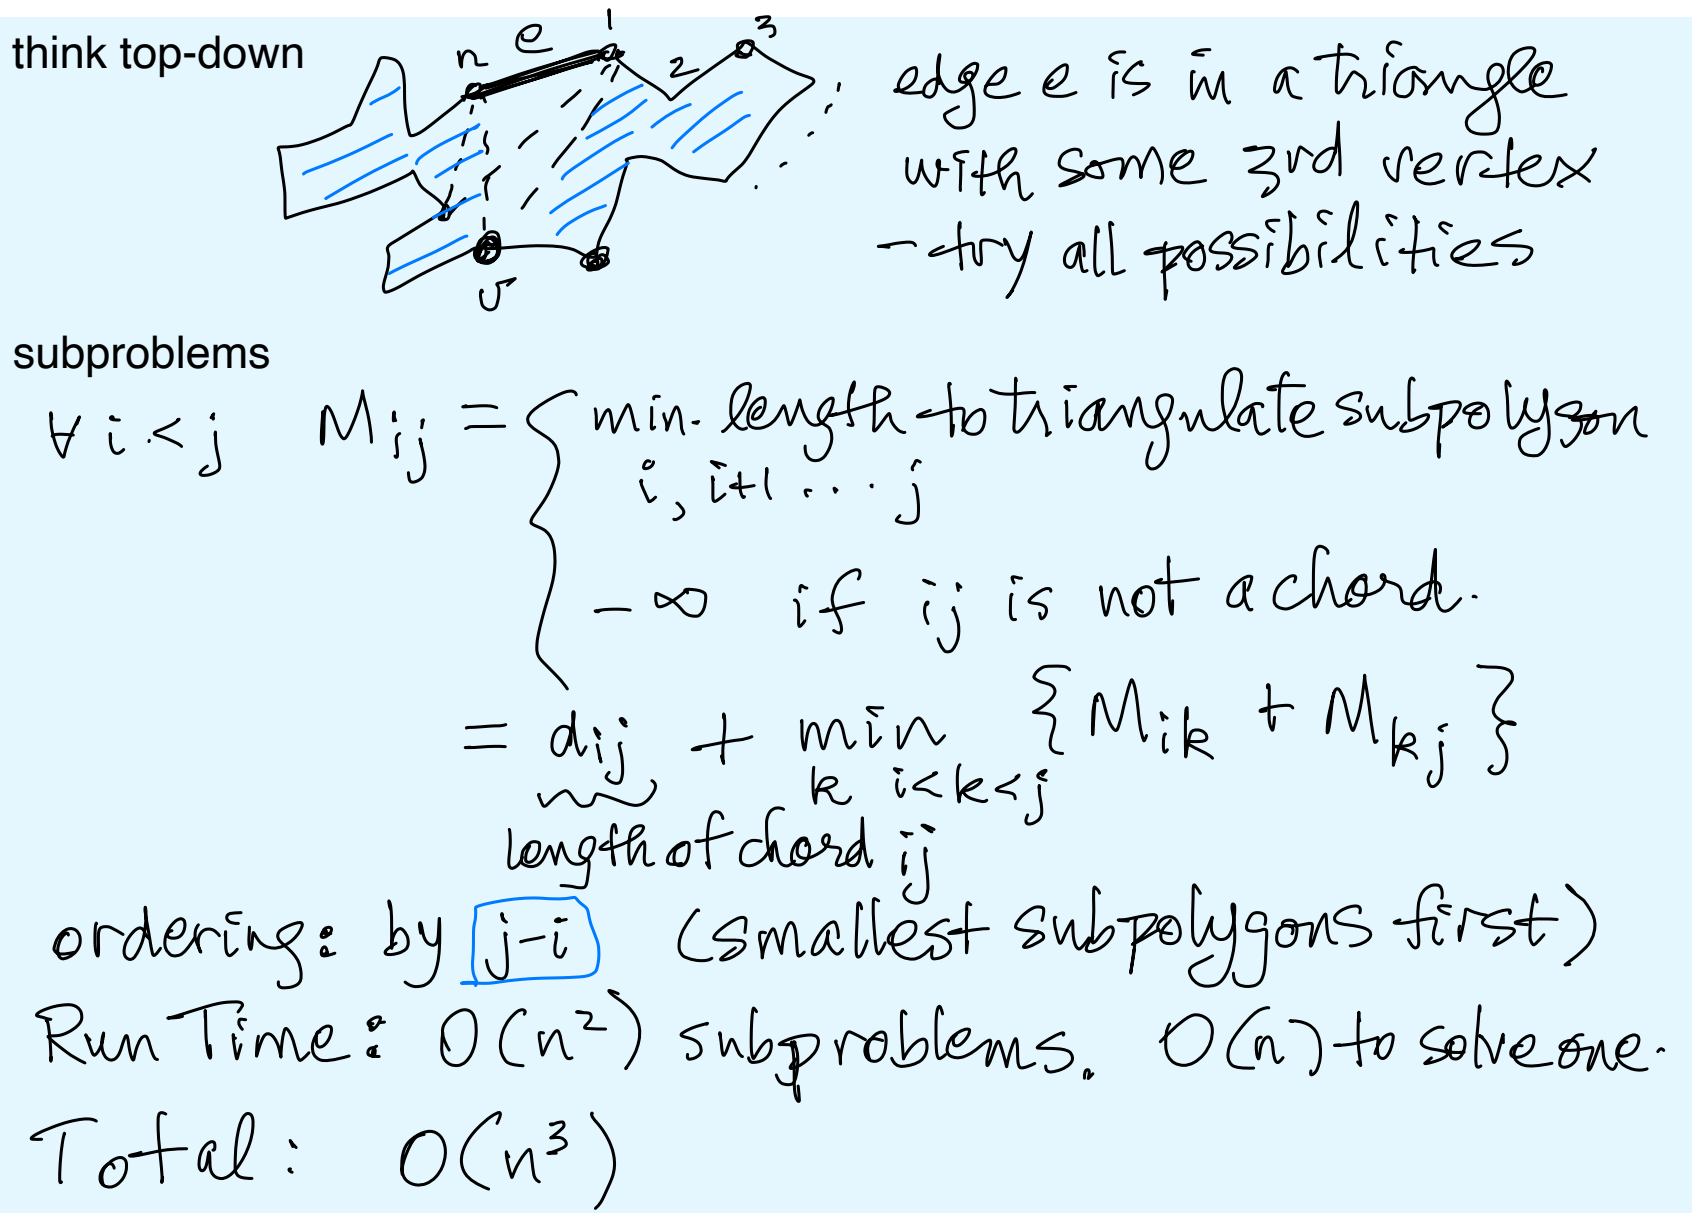 think top-down
n e 1 2 3
edge e is in a triangle
with some 3rd vertex
- try all possibilities
v
subproblems
∀ i < j M_ij = { min. length to triangulate subpolygon
i, i+1 ... j
-∞ if ij is not a chord.
= d_ij + min {M_ik + M_kj}
k i<k<j
length of chord ij
ordering: by j-i (smallest subpolygons first)
Run Time: O(n²) subproblems. O(n) to solve one.
Total: O(n³)